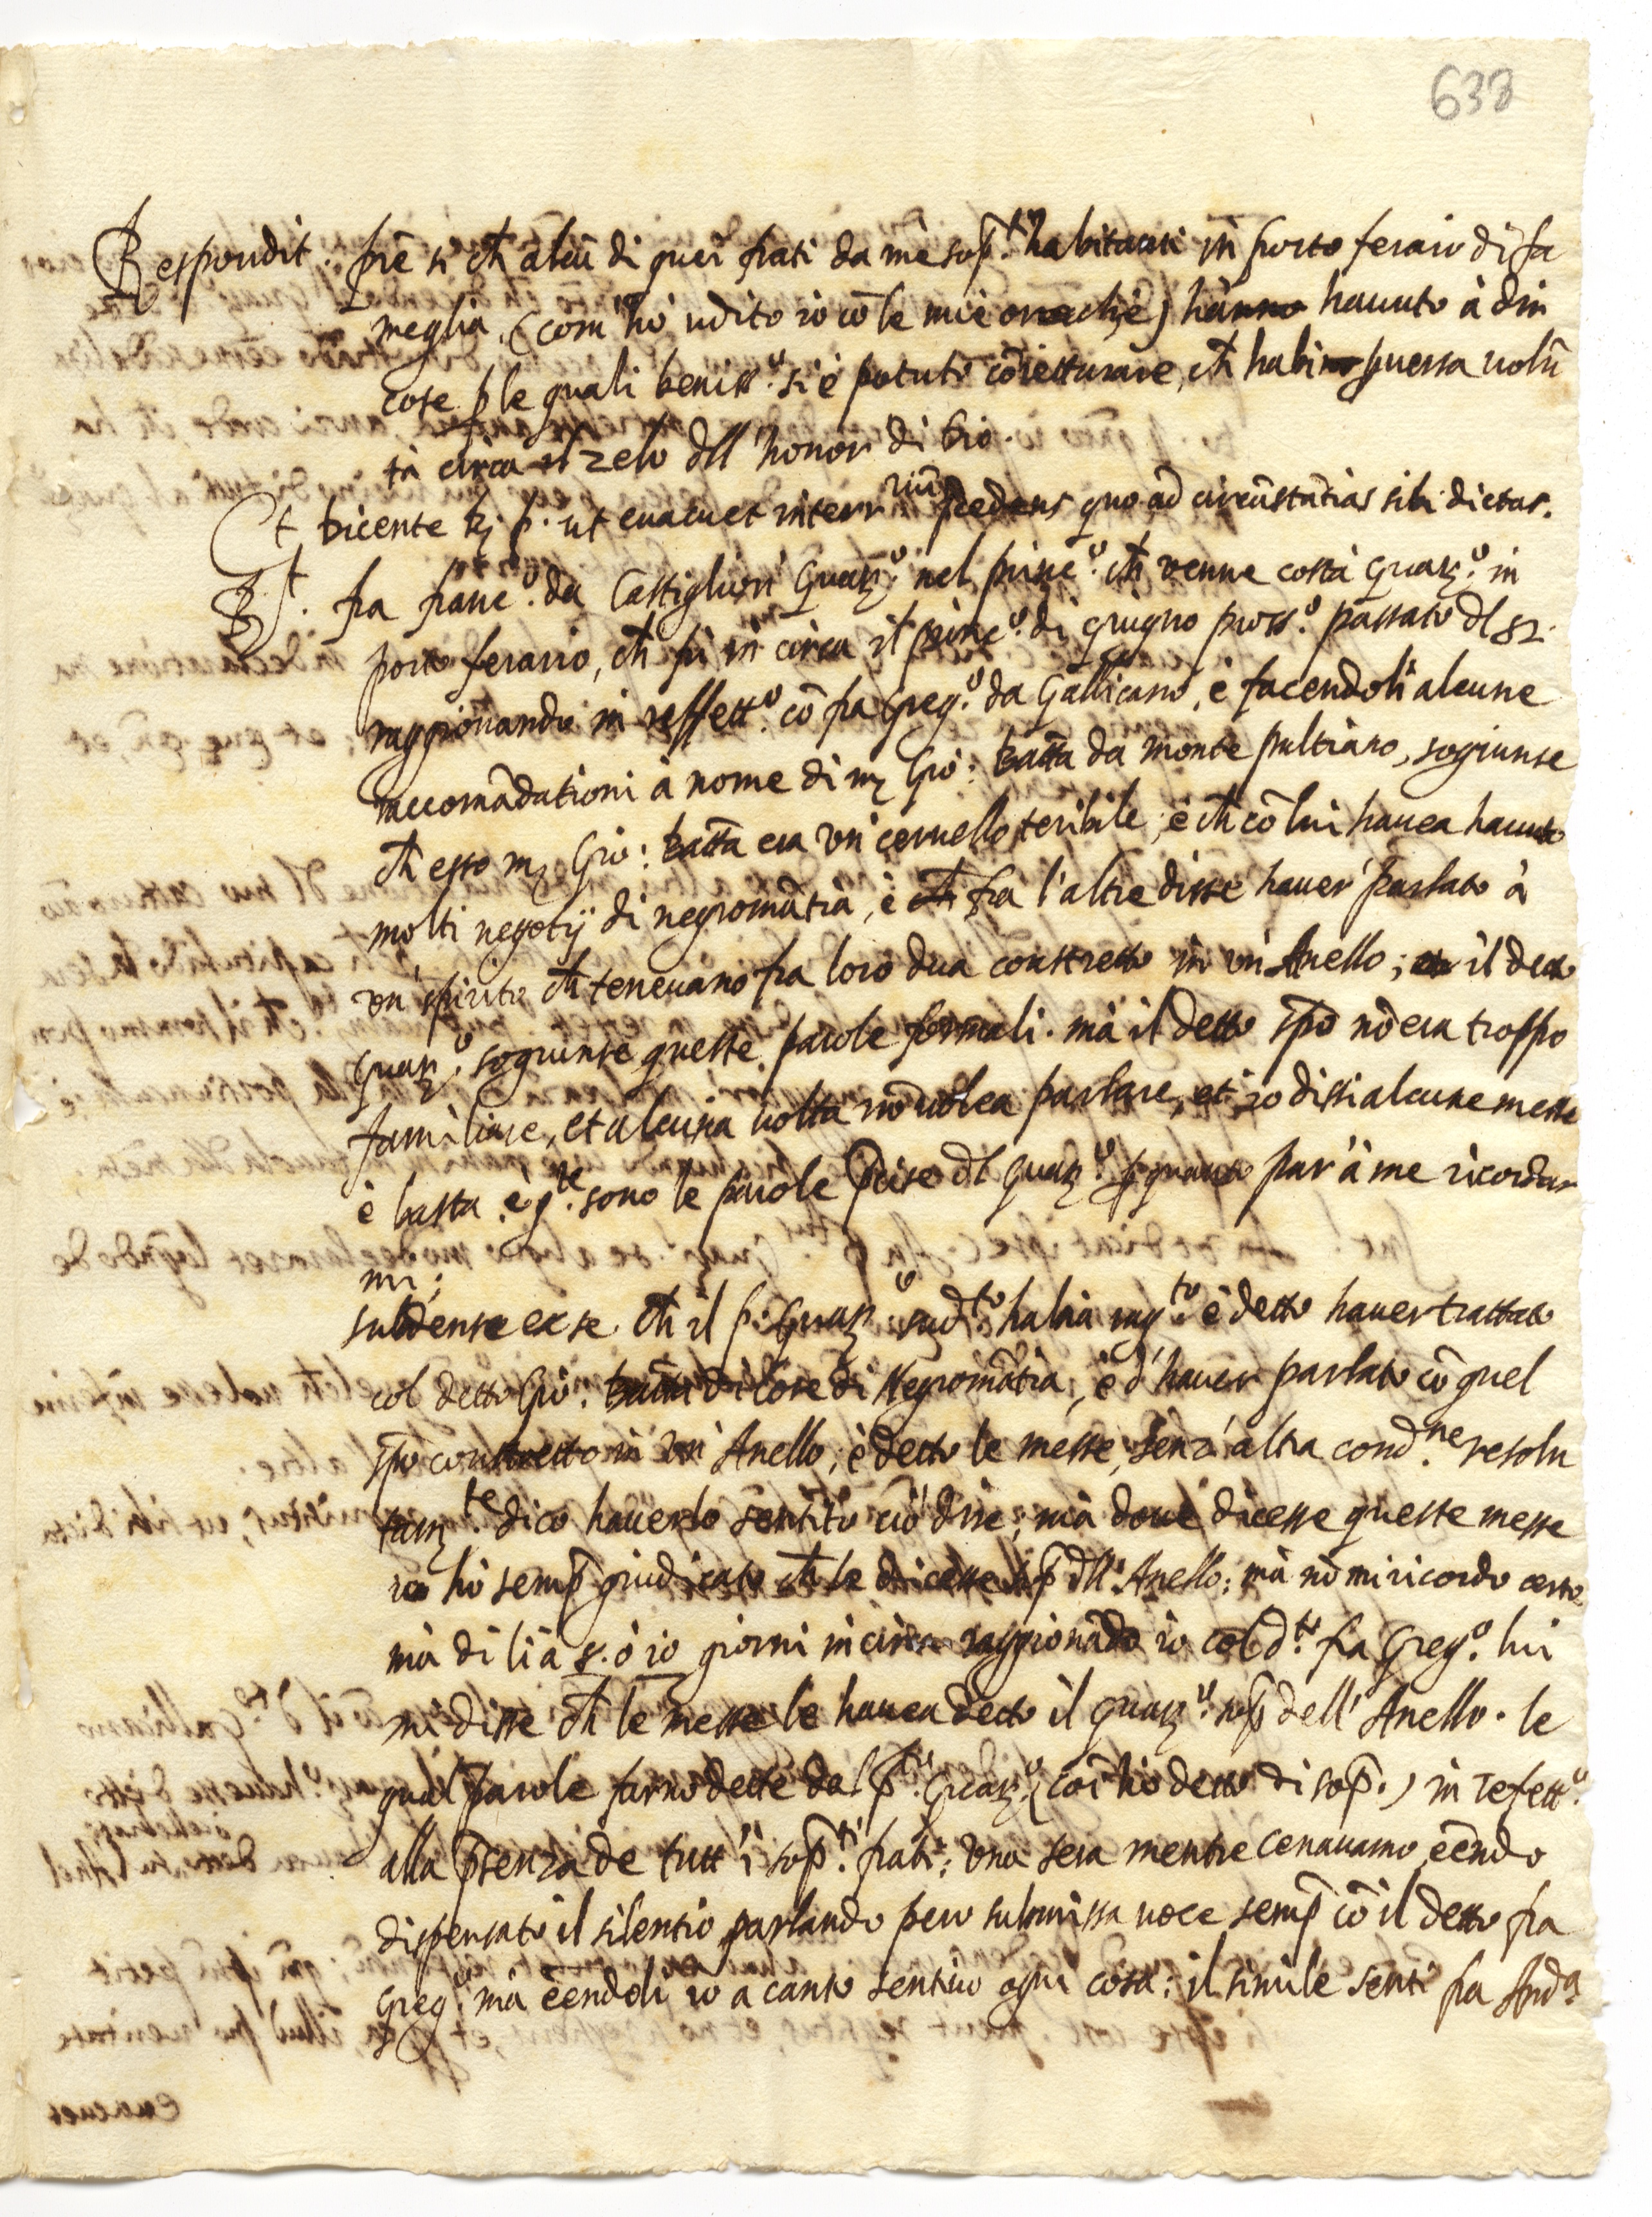 638
Respondit. prē si ch̄ alcū di quei frati da me sop.ti habitanti in porto feraio di fa
meglia, (com' hò udito io cō le mie orechie) hanno hauuto à dir
cose p̱ le quali beniss.o si è potuto cōietturare, ch̄ habino puersa uolū
tà circa il zelo dll' honor di Dio.
Et Dicente R. p. ut euacuet interr.rium p̄cedens quo ad circūstātias sibi dictas.
R.t. fra franc.o da Castiglion Guar.o nel princ.o ch̄ venne costà Guar.o in
porto ferario, ch̄ fù in circa il princ.o di giugno pross.o passato dl 82.
raggionando in reffett.o cō fra Greg.o da Gallicano, è facendoli alcune
raccomādationi à nome di m. Gio: Batta da monte pultiano, sogiunse
ch̄ esso m. Gio: Batta era un' ceruello teribile, è ch̄ cō lui hauea hauuto
molti negotij di negromātia, è ch̄ fra l'altre disse hauer' parlato à
un' spirito ch̄ teneuano fra loro dua constretto in un' Anello; il detto
Guar.o sogiunse queste parole formali. mà il detto sp̄o nō era troppo
familiare, et alcuna uolta nō uolea parlare, et io dissi alcune messe
è basta. è q.te sono le parole p̄cise dl Guar.o p̱ quanto par' à me ricordar
mi;
subdens ex se ch̄ il p. Guar.o sud.to habia rag.to è detto hauer trattato
col detto Gio: Batta di cose di Negromātia, è d' hauer parlato cō quel
sp̄o constretto in un' Anello, è detto le messe, senz' altra cond.ne resolu
tam.te dico hauerlo sentito ciò dire; mà doue dicesse queste messe
io hò semp̄ giudicato ch̄ le dicesse sop̄ dll' Anello; mà nō mi ricordo certo
mà di lì à 8. ò 10 giorni in circa raggionādo io col d.to fra Greg.o lui
mi disse ch̄ le messe le hauea dette il Guar.o sop̄ dell' Anello. le
qual parole furno dette dal p. Guar.o (com' hò detto di sop̄.) in refett.o
alla p̄senza de tutt' i sop.ti frati; una sera mentre cenauamo, eēndo
dispensato il silentio parlando pero submissa uoce semp̄ cō il detto fra
Greg.o mà eēndoli io a canto sentiuo ogni cosa: il simile sentì fra And.a